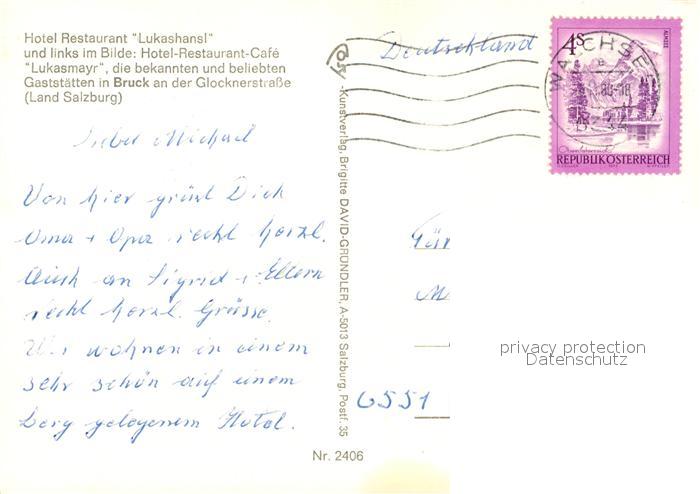 Hotel Restaurant "Lukashansl"
und links im Bilde: Hotel-Restaurant-Café
"Lukasmayr", die bekannten und beliebten
Gaststätten in Bruck an der Glocknerstraße
(Land Salzburg)
Lieber Michael
Von hier grüßt Dich
Oma + Opa recht herzl.
Auch an Sigrid + Eltern
recht herzl. Grüsse.
Wir wohnen in einem
sehr schön auf einem
Berg gelegenem Hotel.
Nr. 2406
-Kunstverlag, Brigitte DAVID-GRÜNDLER, A-5013 Salzburg, Postf. 35
Deutschland
4S
ALMSEE
REPUBLIK ÖSTERREICH
6551
privacy protection
Datenschutz